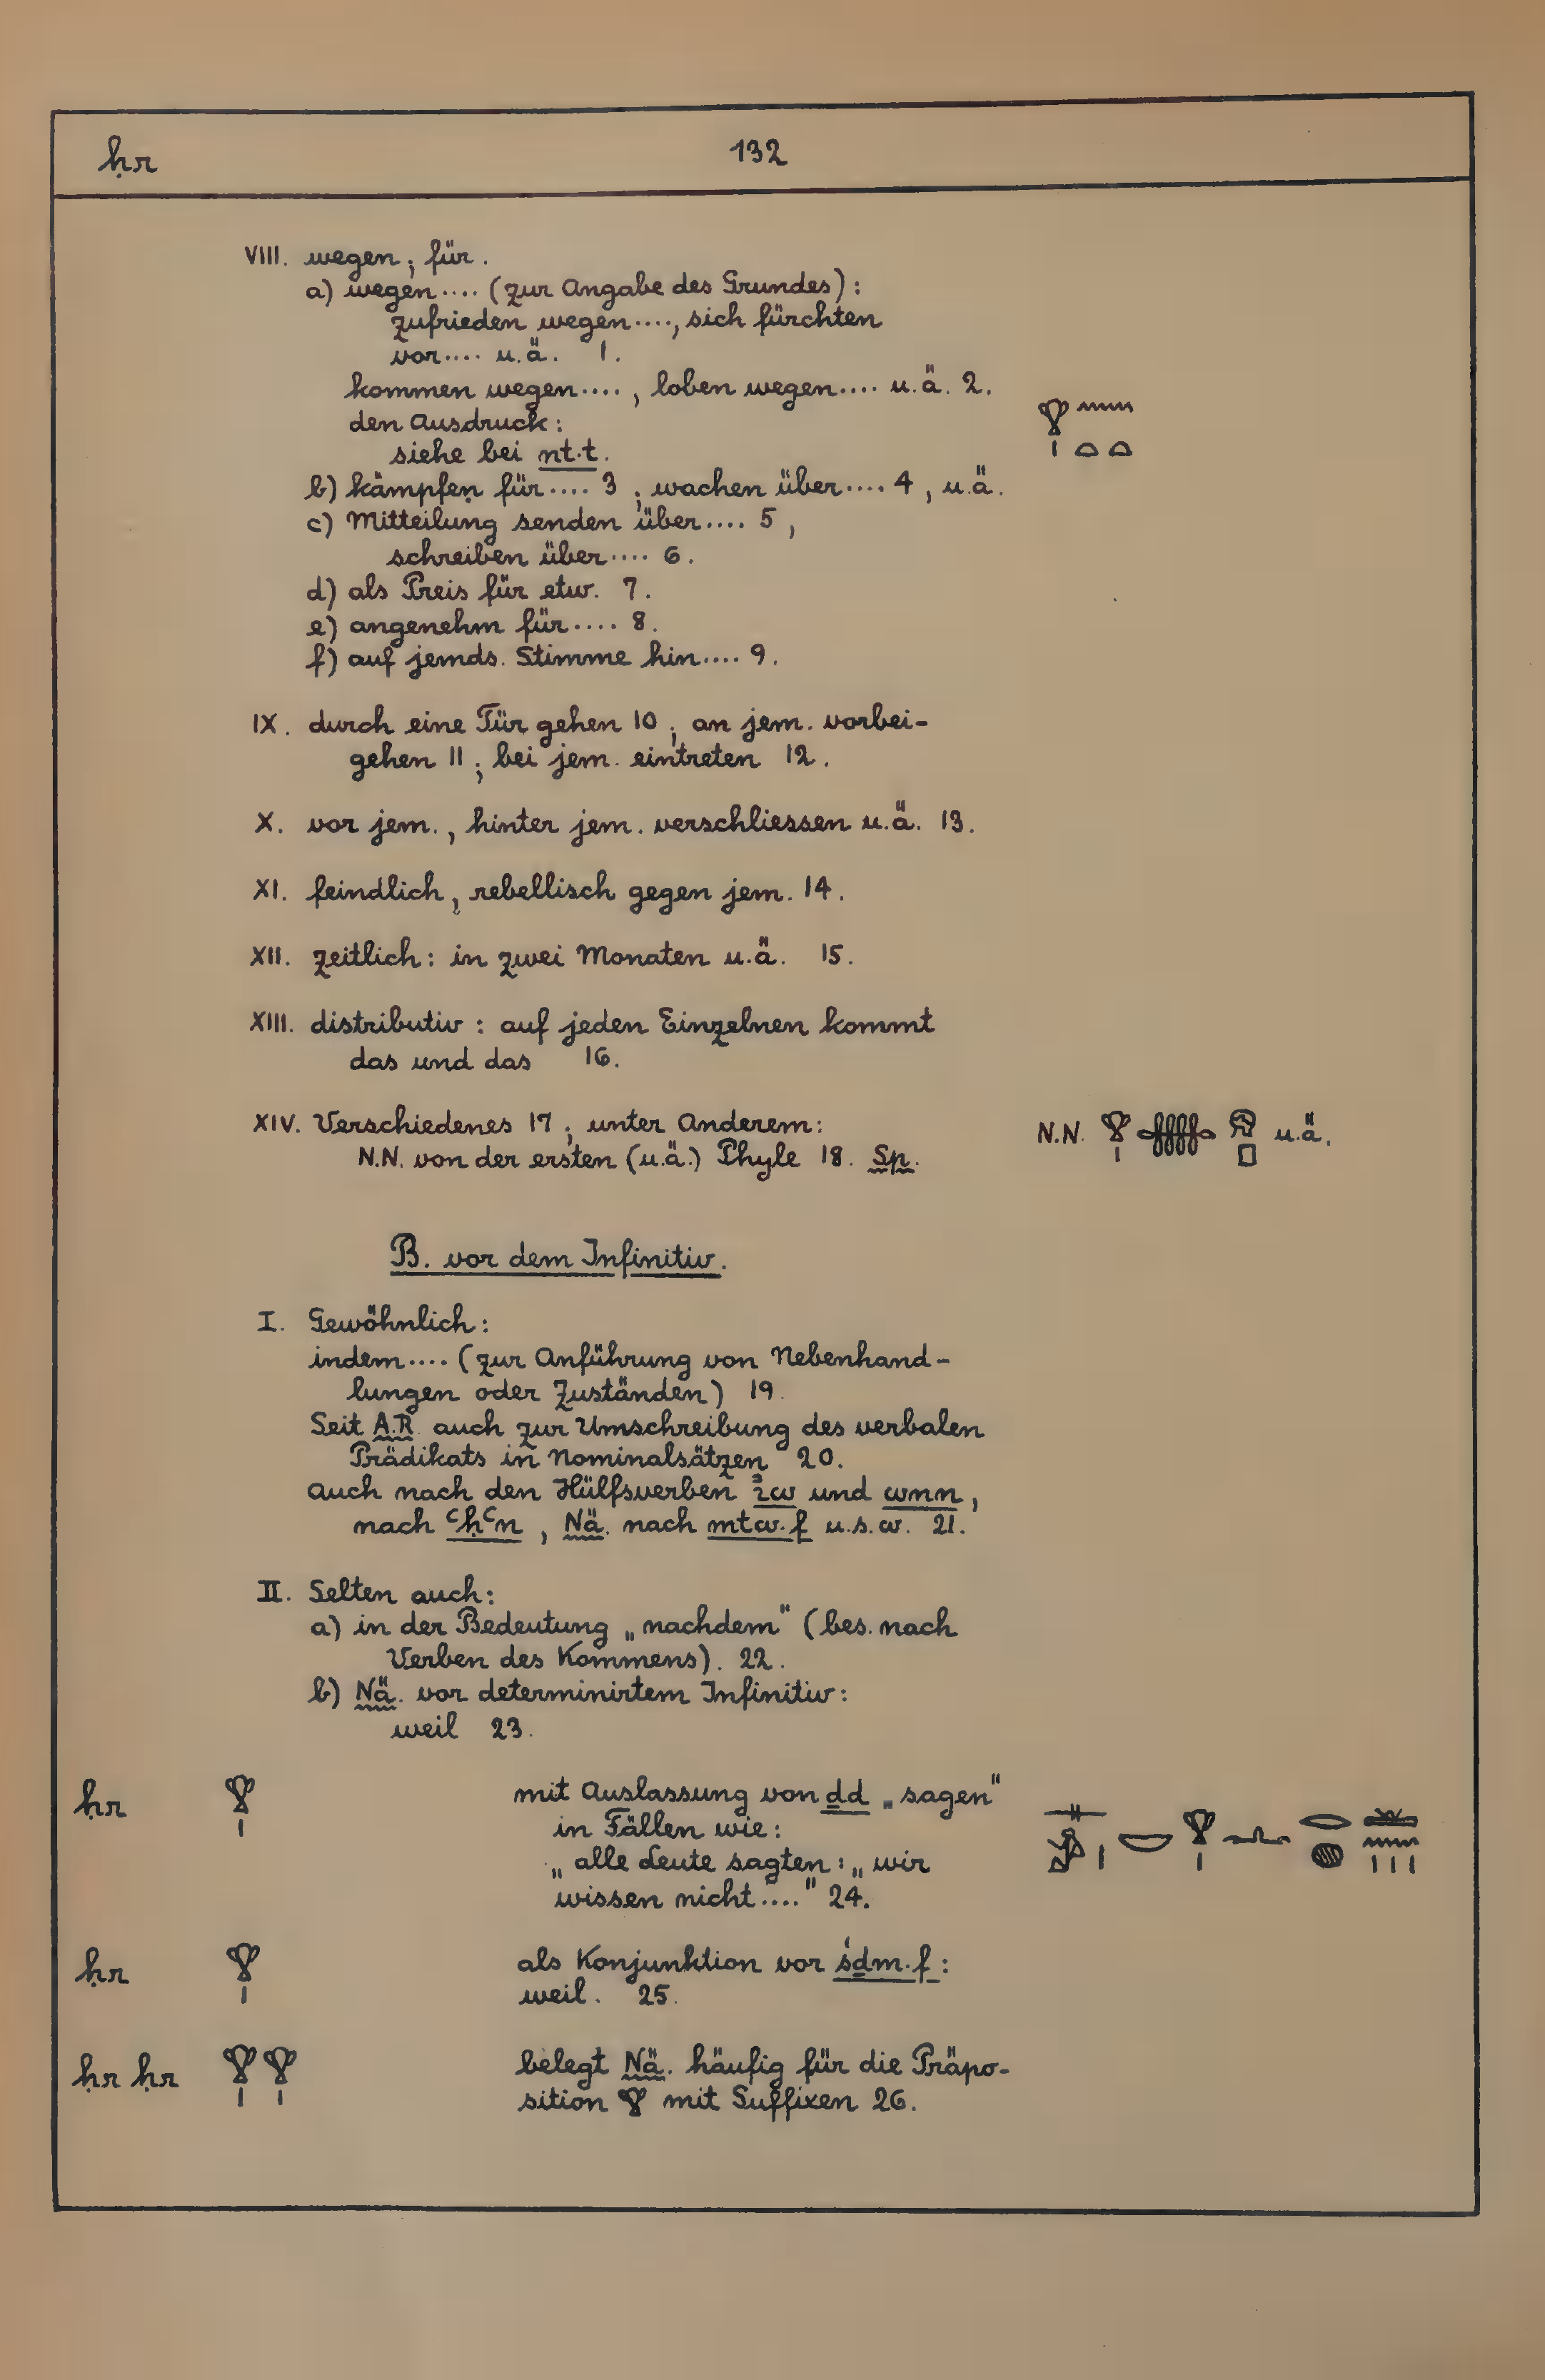 ḥr
132
VIII. wegen; für.
a) wegen.... (zur Angabe des Grundes):
zufrieden wegen...., sich fürchten
vor.... u.ä. 1.
kommen wegen...., loben wegen.... u.ä. 2.
den Ausdruck: 𓁷𓏤𓈖𓏏𓏏
siehe bei nt.t.
b) kämpfen für.... 3; wachen über.... 4, u.ä.
c) Mitteilung senden über.... 5,
schreiben über.... 6.
d) als Preis für etw. 7.
e) angenehm für.... 8.
f) auf jemds. Stimme hin.... 9.
IX. durch eine Tür gehen 10; an jem. vorbei-
gehen 11; bei jem. eintreten 12.
X. vor jem., hinter jem. verschliessen u.ä. 13.
XI. feindlich, rebellisch gegen jem. 14.
XII. zeitlich: in zwei Monaten u.ä. 15.
XIII. distributiv: auf jeden Einzelnen kommt
das und das 16.
XIV. Verschiedenes 17; unter Anderem: N.N. 𓁷𓏤 u.ä.
N.N. von der ersten (u.ä.) Phyle 18. Sp.
B. vor dem Infinitiv.
I. Gewöhnlich:
indem.... (zur Anführung von Nebenhand-
lungen oder Zuständen) 19.
Seit A.R. auch zur Umschreibung des verbalen
Prädikats in Nominalsätzen 20.
auch nach den Hülfsverben ꞽw und wnn,
nach ꜥḥꜥn, Nä. nach mtw.f u.s.w. 21.
II. Selten auch:
a) in der Bedeutung „nachdem" (bes. nach
Verben des Kommens). 22.
b) Nä. vor determinirtem Infinitiv:
weil 23.
ḥr 𓁷𓏤 mit Auslassung von ḏd „sagen"
in Fällen wie:
„alle Leute sagten: „wir
wissen nicht...." 24.
ḥr 𓁷𓏤 als Konjunktion vor śḏm.f:
weil. 25.
ḥr ḥr 𓁷𓏤𓁷𓏤 belegt Nä. häufig für die Präpo-
sition 𓁷 mit Suffixen 26.